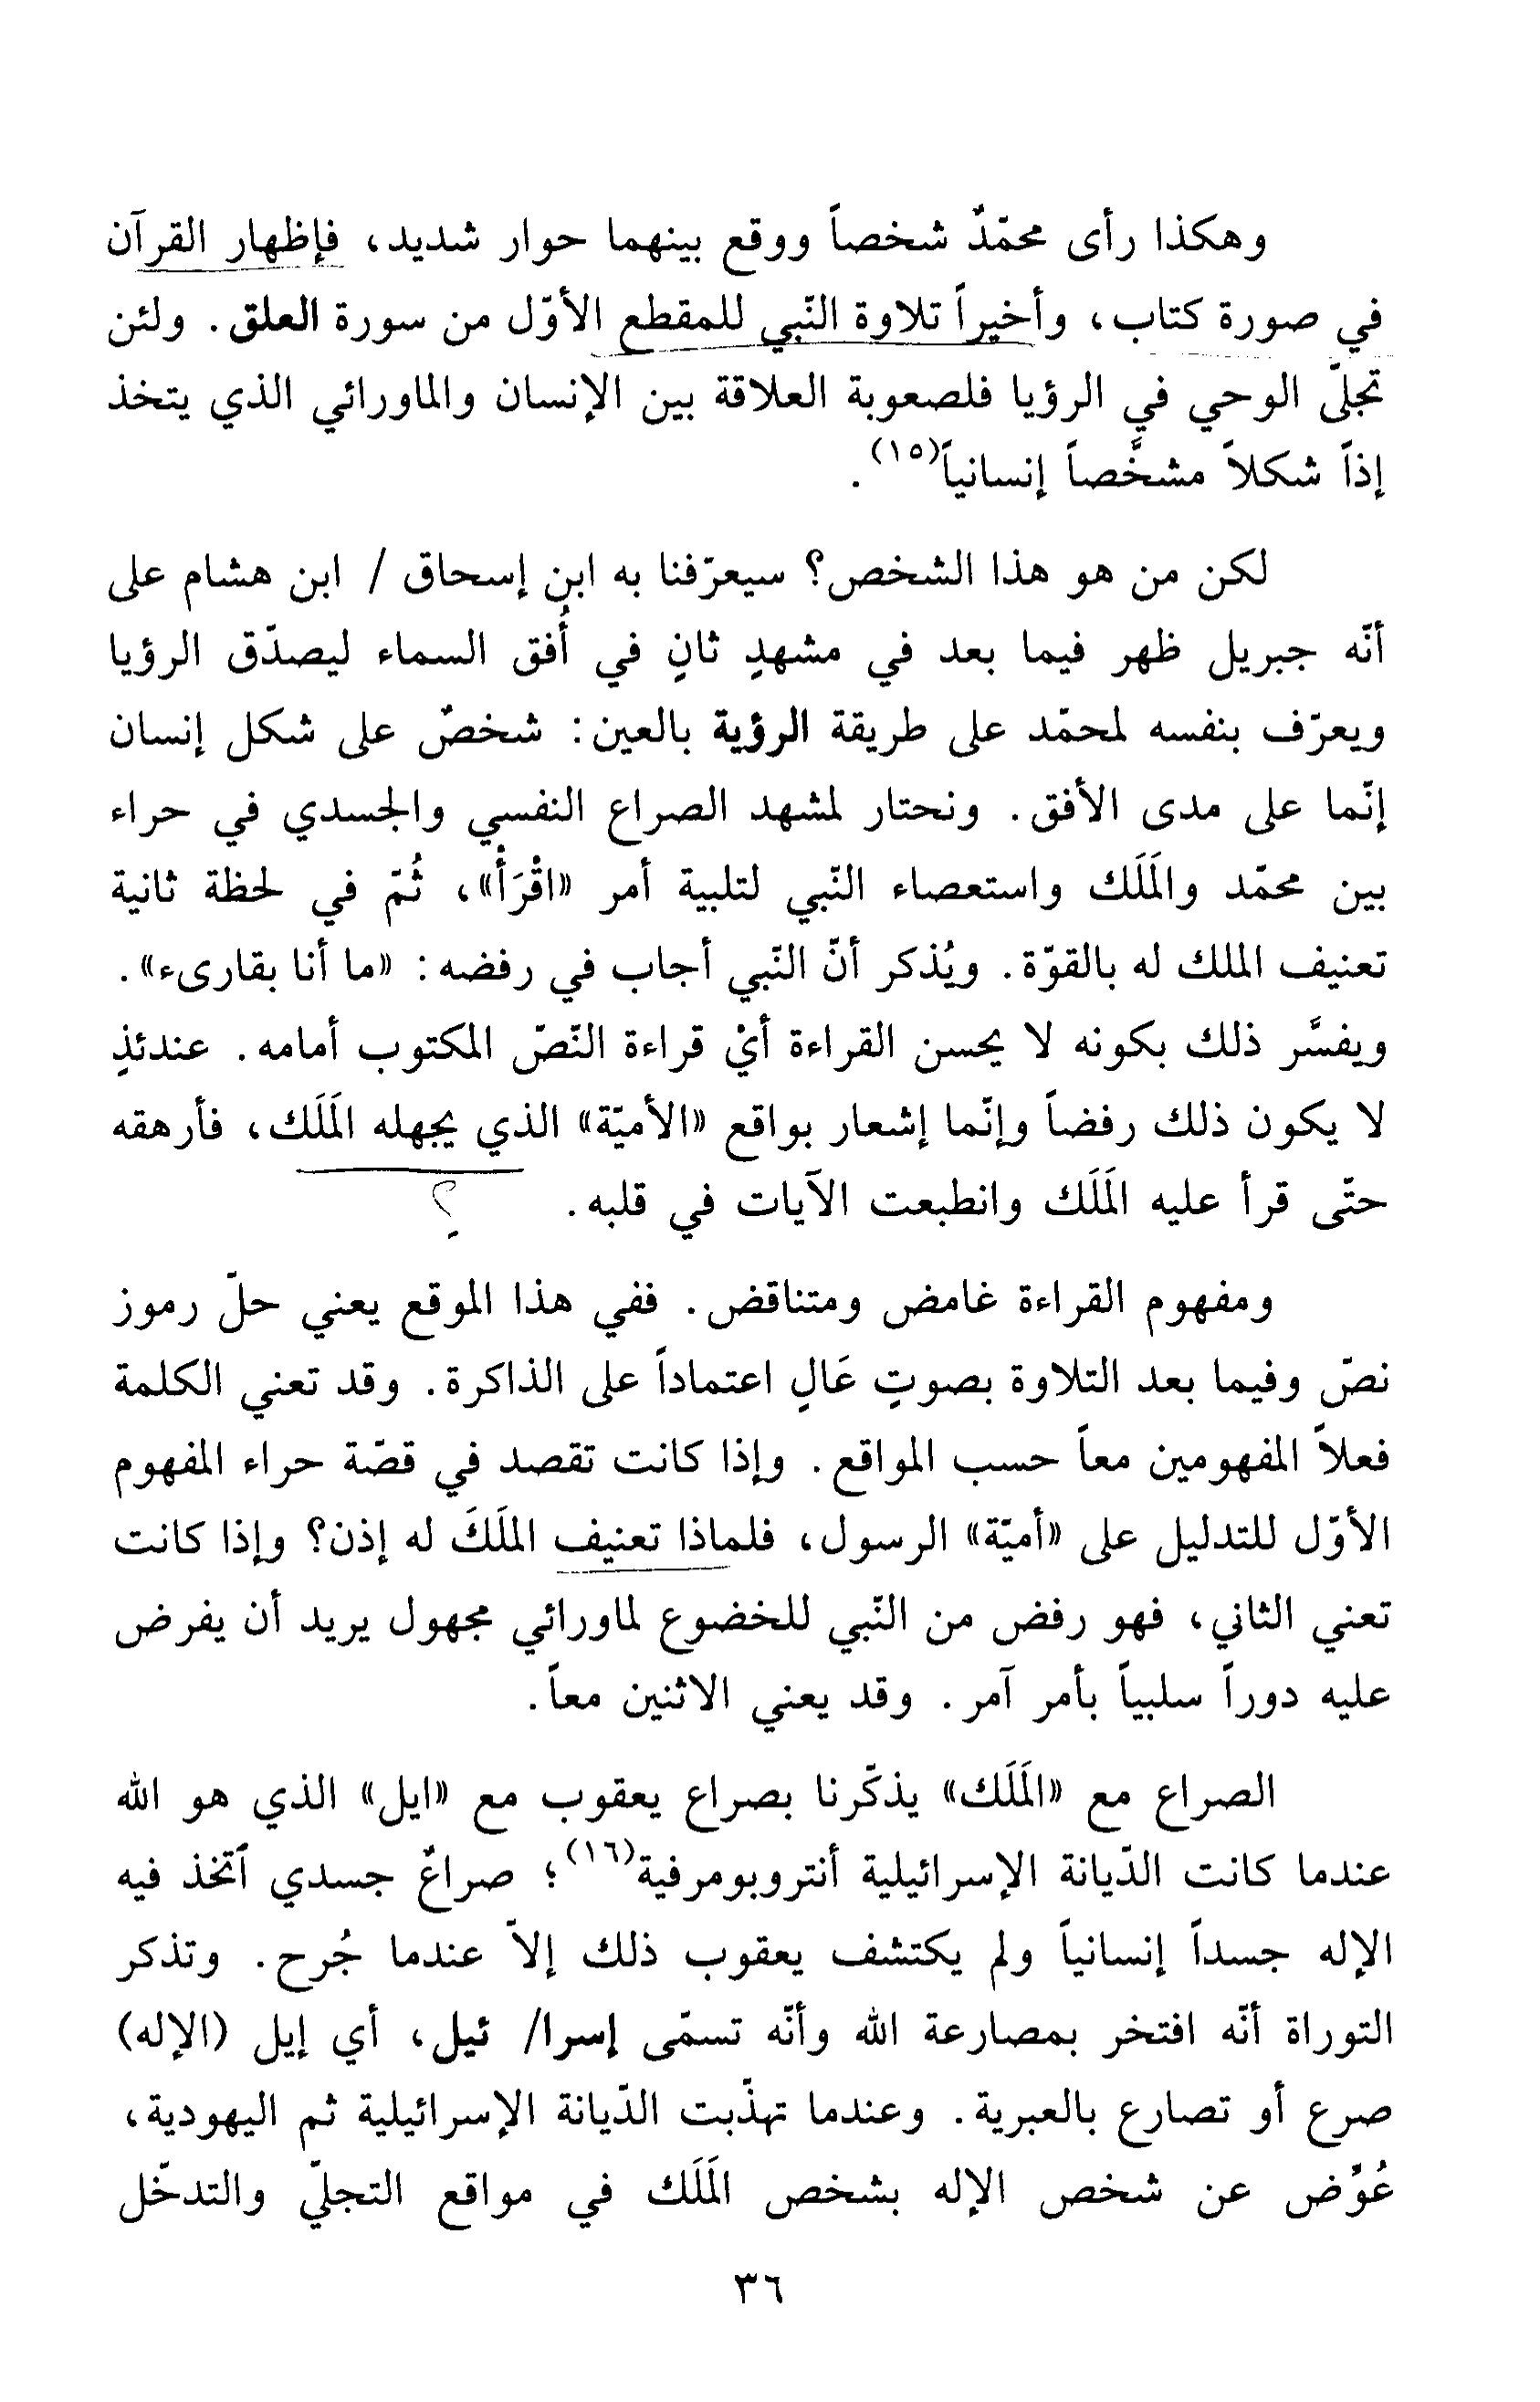 وهكذا رأى محمّدٌ شخصاً ووقع بينهما حوار شديد، فإظهار القرآن
في صورة كتاب، وأخيراً تلاوة النّبي للمقطع الأوّل من سورة العلق. ولئن
تجلّى الوحي في الرؤيا فلصعوبة العلاقة بين الإنسان والماورائي الذي يتخذ
إذاً شكلاً مشخَّصاً إنسانياً(١٥).
لكن من هو هذا الشخص؟ سيعرّفنا به ابن إسحاق / ابن هشام على
أنّه جبريل ظهر فيما بعد في مشهدٍ ثانٍ في أُفق السماء ليصدّق الرؤيا
ويعرّف بنفسه لمحمّد على طريقة الرؤية بالعين: شخصٌ على شكل إنسان
إنّما على مدى الأفق. ونحتار لمشهد الصراع النفسي والجسدي في حراء
بين محمّد والمَلَك واستعصاء النّبي لتلبية أمر «اقْرَأْ»، ثُمّ في لحظة ثانية
تعنيف الملك له بالقوّة. ويُذكر أنّ النّبي أجاب في رفضه: «ما أنا بقارىء».
ويفسَّر ذلك بكونه لا يحسن القراءة أيْ قراءة النّصّ المكتوب أمامه. عندئذٍ
لا يكون ذلك رفضاً وإنّما إشعار بواقع «الأميّة» الذي يجهله المَلَك، فأرهقه
حتّى قرأ عليه المَلَك وانطبعت الآيات في قلبه. ؟
ومفهوم القراءة غامض ومتناقض. ففي هذا الموقع يعني حلّ رموز
نصّ وفيما بعد التلاوة بصوتٍ عَالٍ اعتماداً على الذاكرة. وقد تعني الكلمة
فعلاً المفهومين معاً حسب المواقع. وإذا كانت تقصد في قصّة حراء المفهوم
الأوّل للتدليل على «أميّة» الرسول، فلماذا تعنيف الملَكَ له إذن؟ وإذا كانت
تعني الثاني، فهو رفض من النّبي للخضوع لماورائي مجهول يريد أن يفرض
عليه دوراً سلبياً بأمر آمر. وقد يعني الاثنين معاً.
الصراع مع «المَلَك» يذكّرنا بصراع يعقوب مع «ايل» الذي هو الله
عندما كانت الدّيانة الإسرائيلية أنتروبومرفية(١٦)؛ صراعٌ جسدي ٱتخذ فيه
الإله جسداً إنسانياً ولم يكتشف يعقوب ذلك إلاّ عندما جُرح. وتذكر
التوراة أنّه افتخر بمصارعة الله وأنّه تسمّى إسرا/ ئيل، أي إيل (الإله)
صرع أو تصارع بالعبرية. وعندما تهذّبت الدّيانة الإسرائيلية ثم اليهودية،
عُوِّض عن شخص الإله بشخص المَلَك في مواقع التجلّي والتدخّل
٣٦